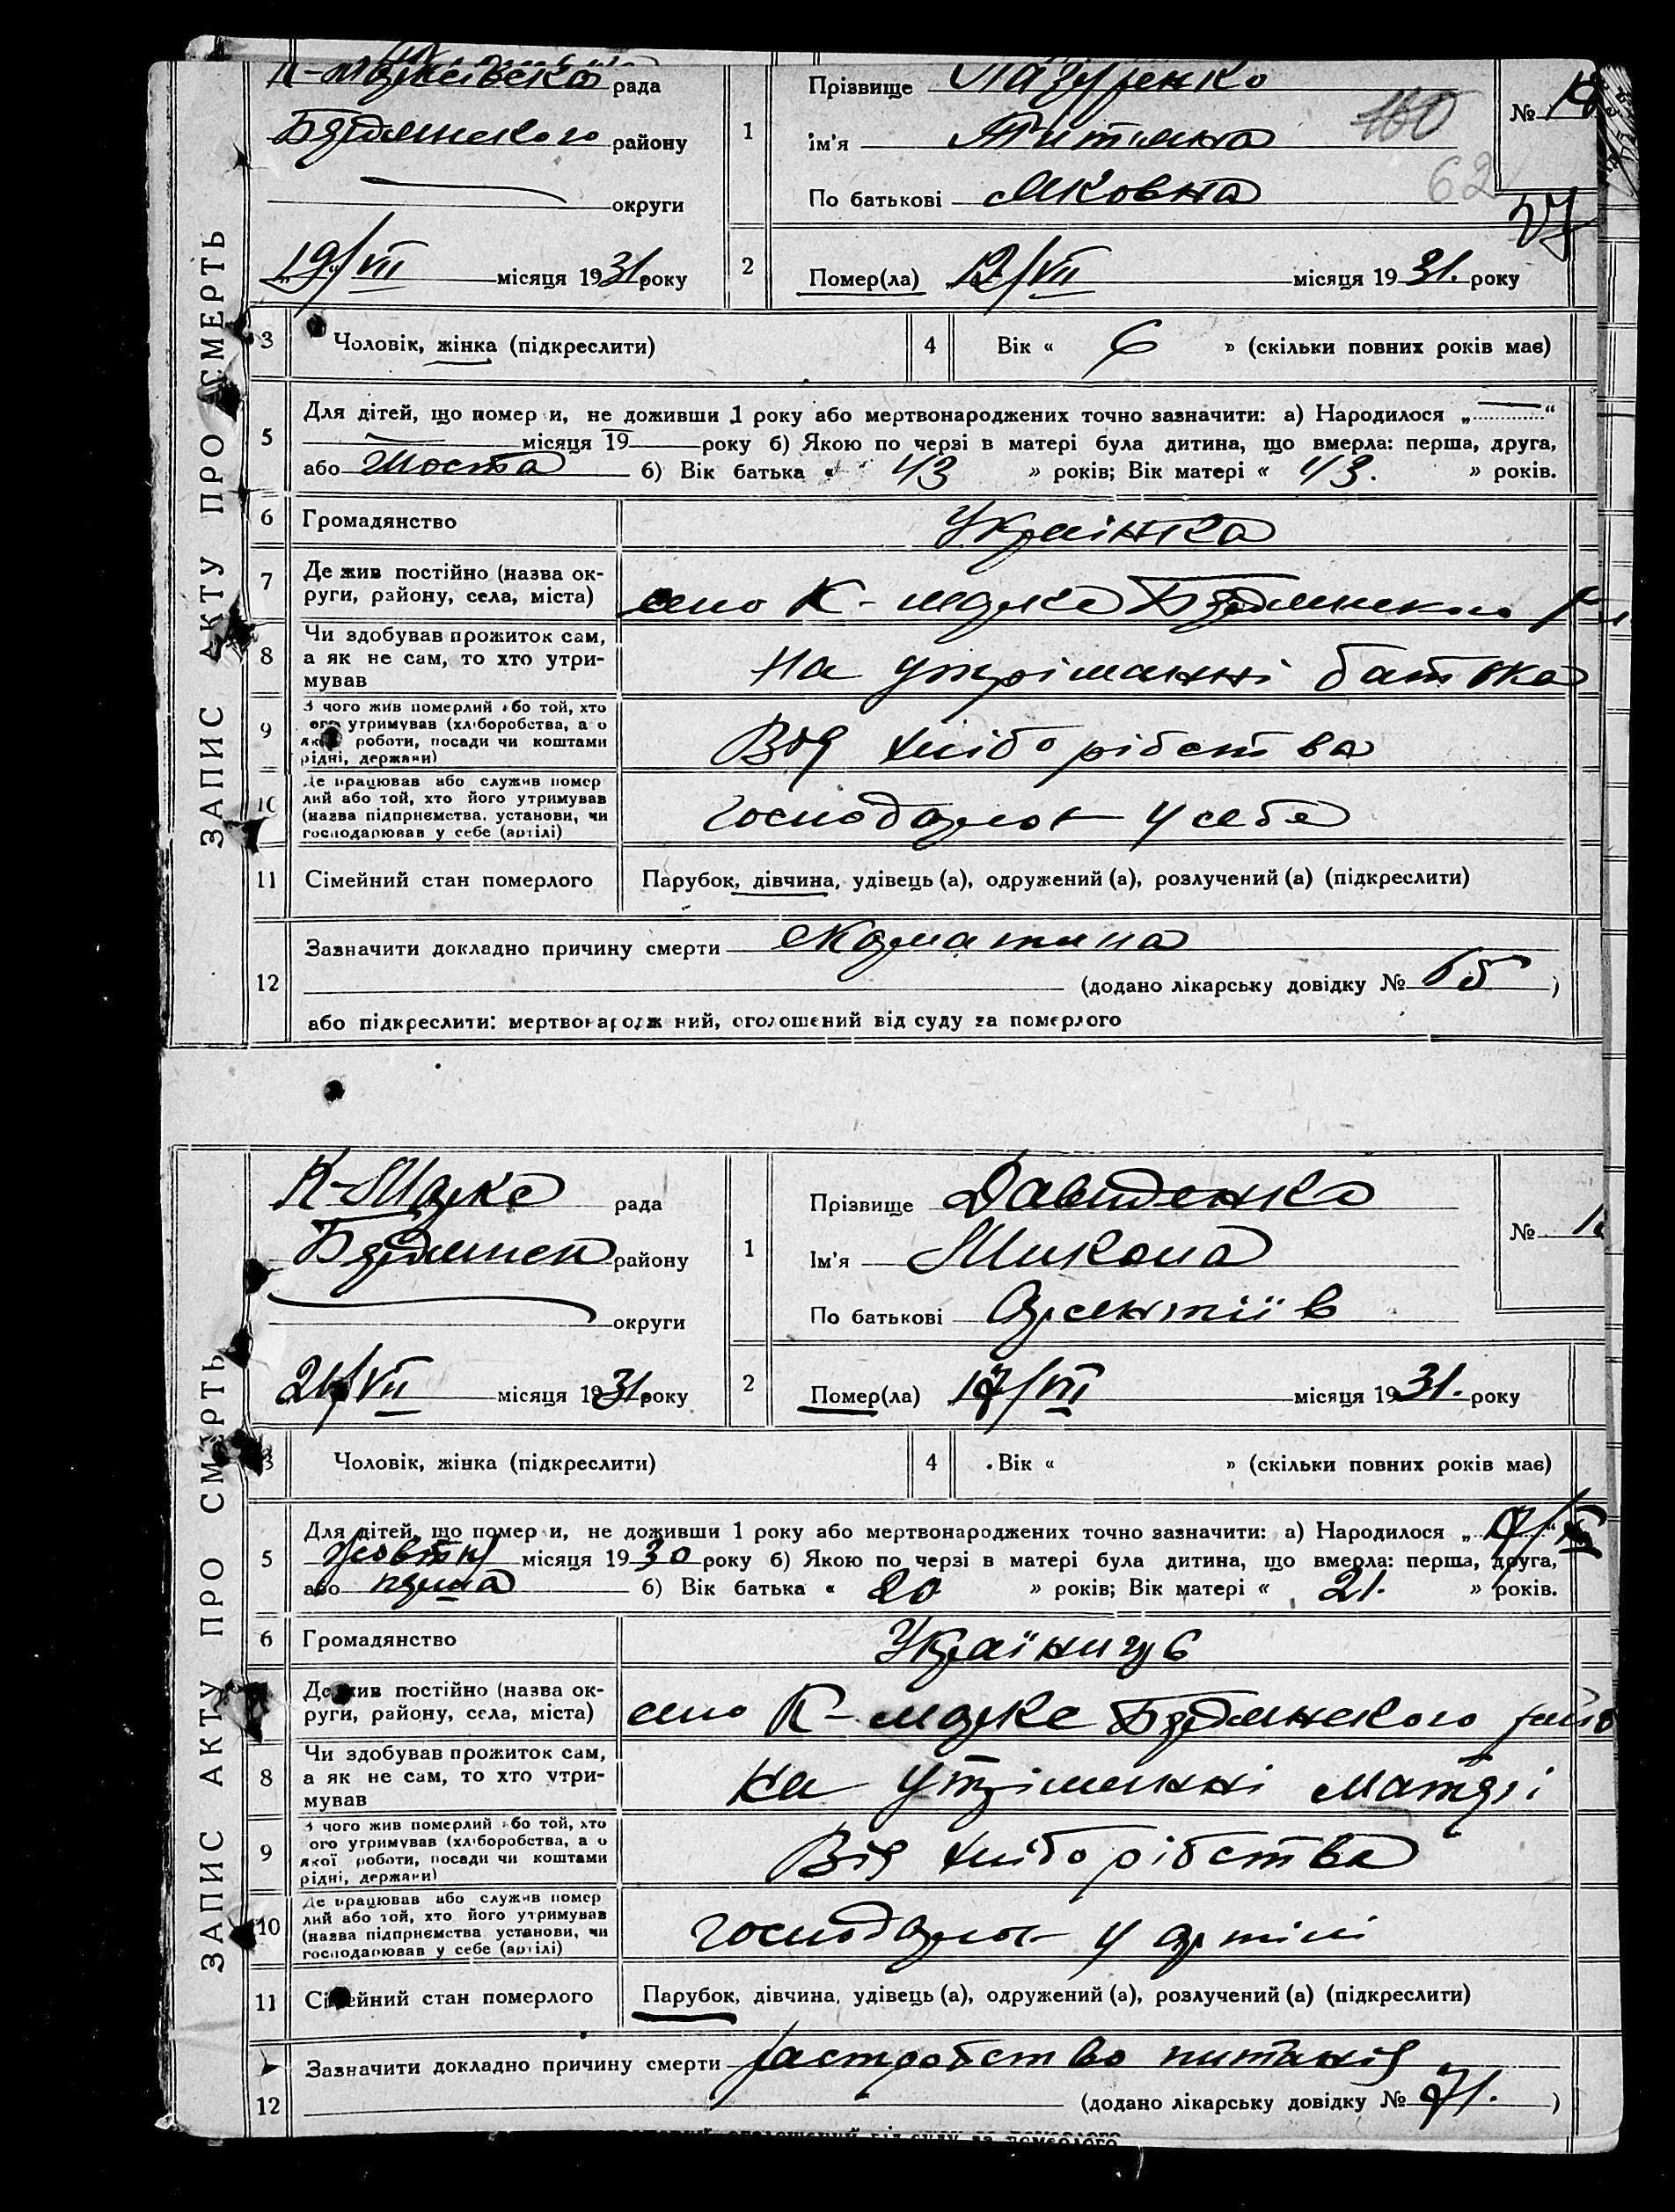 ЗАПИС АКТУ ПРО СМЕРТЬ
рада
Бурлинского району
округи
19/VII місяця 1931 року
1
Прізвище Лазуренко
ім'я Титяна
По батькові Яковна
№
160
62
2
Помер(ла) 12/VII місяця 1931. року
3 Чоловік, жінка (підкреслити)
4 Вік « 6 » (скільки повних років має)
5 Для дітей, що помер и, не доживши 1 року або мертвонароджених точно зазначити: а) Народилося „ “
місяця 19 року б) Якою по черзі в матері була дитина, що вмерла: перша, друга,
або Шоста б) Вік батька « 43 » років; Вік матері « 43. » років.
6 Громадянство Українка
7 Де жив постійно (назва ок-
руги, району, села, міста) село К-
8 Чи здобував прожиток сам,
а як не сам, то хто утри-
мував На утріманні батька
9 З чого жив померлий або той, хто
ого утримував (хліборобства, а о
якої роботи, посади чи коштами
рідні, держави) Від хліборібства
10 Де працював або служив помер
лий або той, хто його утримував
(назва підприємства, установи, чи
господарював у себе (артілі) господарюв у себе
11 Сімейний стан померлого Парубок, дівчина, удівець (а), одружений (а), розлучений (а) (підкреслити)
12 Зазначити докладно причину смерти Скарлатина
(додано лікарську довідку № )
або підкреслити: мертвонароджений, оголошений від суду за померлого
ЗАПИС АКТУ ПРО СМЕРТЬ
рада
району
округи
21/VII місяця 1931 року
1
Прізвище Давиденко
Ім'я Микола
По батькові Арсентіїв
№
2
Помер(ла) 17/VII місяця 1931. року
3 Чоловік, жінка (підкреслити)
4 Вік « » (скільки повних років має)
5 Для дітей, що помер и, не доживши 1 року або мертвонароджених точно зазначити: а) Народилося „ “
Жовтня місяця 1930 року б) Якою по черзі в матері була дитина, що вмерла: перша, друга,
або перша б) Вік батька « 20 » років; Вік матері « 21. » років.
6 Громадянство Українець
7 Де жив постійно (назва ок-
руги, району, села, міста) село К-
8 Чи здобував прожиток сам,
а як не сам, то хто утри-
мував На утріманні матері
9 З чого жив померлий або той, хто
ого утримував (хліборобства, а о
якої роботи, посади чи коштами
рідні, держави) Від хліборібства
10 Де працював або служив помер
лий або той, хто його утримував
(назва підприємства установи, чи
господарював у себе (артілі) господарюв у артілі
11 Сімейний стан померлого Парубок, дівчина, удівець (а), одружений (а), розлучений (а) (підкреслити)
12 Зазначити докладно причину смерти растройство питанія
(додано лікарську довідку № 71. )